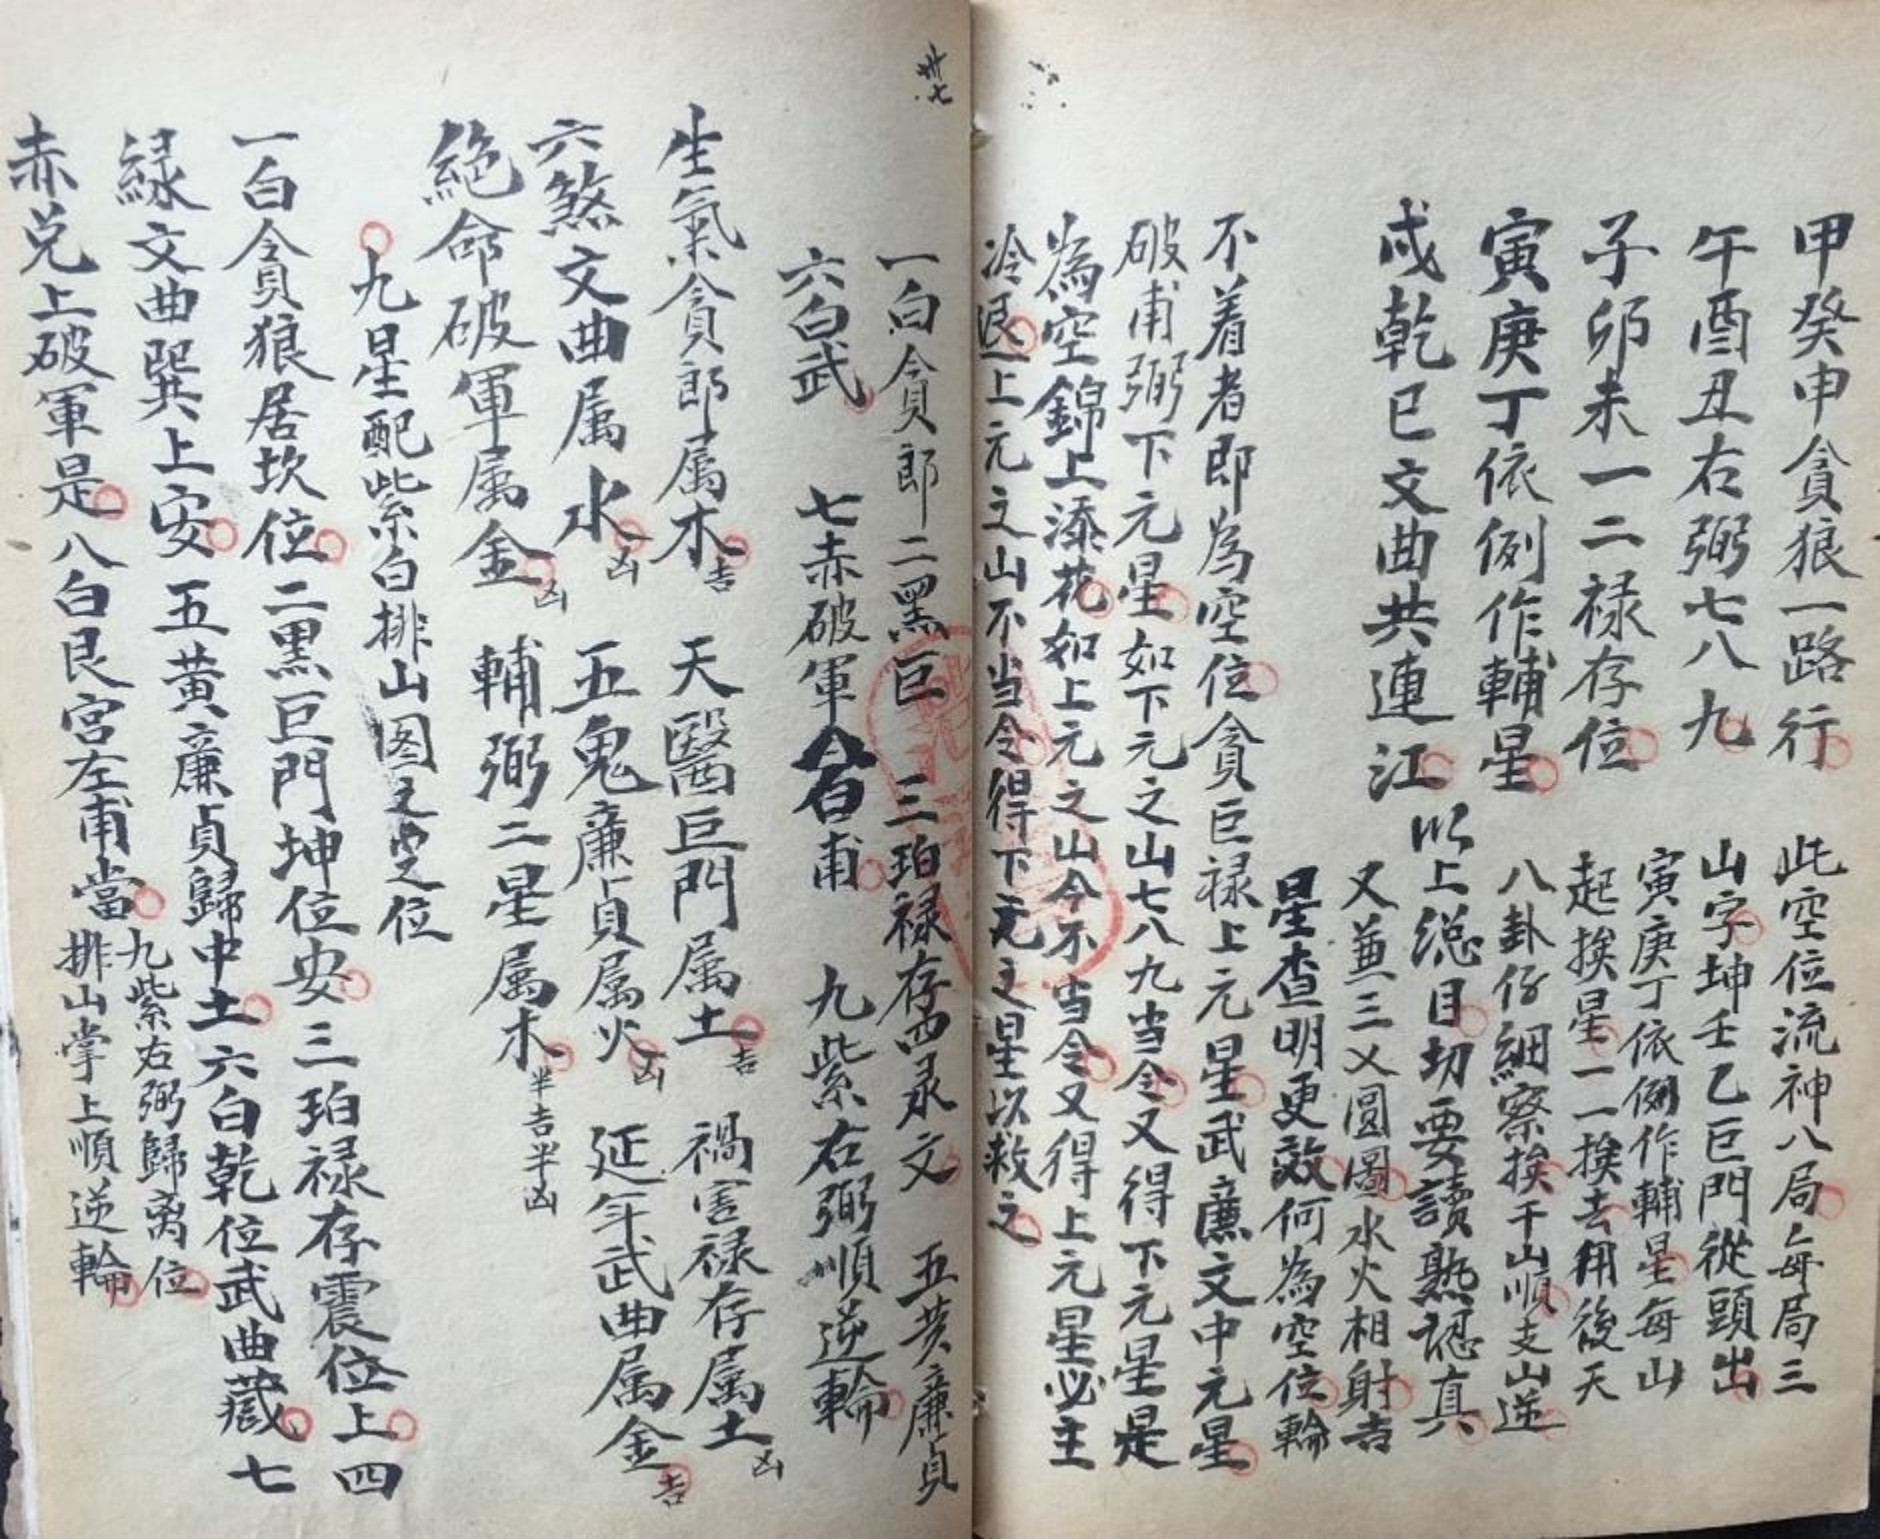 甲癸申貪狼一路行
午酉丑右弼七八九
子卯未一二禄存位
寅庚丁依例作輔星
戍乾巳文曲共連江
此空位流神八局每局三
山字坤壬乙巨門從頭出
寅庚丁依例作輔星每山
起挨星一一挨去用後天
八卦仔細察挨干山順支山逆
以上總目切要讀熟認真
又兼三乂圓圖水火相射吉
星查明更效何為空位輪
不着者即為空位貪巨禄上元星武廉文中元星
破甫弼下元星如下元之山七八九当令又得下元星是
為空錦上添花如上元之山今不当令又得上元星必主
冷退上元之山不当令得下元之星以救之
卅七
一白貪郎二黑巨三珀禄存四录文五黄廉貞
六白武七赤破軍八白甫九紫右弼順逆輪
生氣貪郎属木吉天醫巨門属土吉禍害禄存属土凶
六煞文曲属水凶五鬼廉貞属火凶延年武曲属金吉
絕命破軍属金凶輔弼二星属木半吉半凶
九星配紫白排山图之定位
一白貪狼居坎位二黑巨門坤位安三珀禄存震位上四
緑文曲巽上安五黄廉貞歸中土六白乾位武曲藏七
赤兑上破軍是八白艮宮左甫當九紫右弼歸离位
排山掌上順逆輪